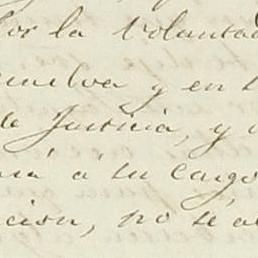 por la voluntad
suelva y en l
de Justicia, y
ará a su cargo
cion, no se a